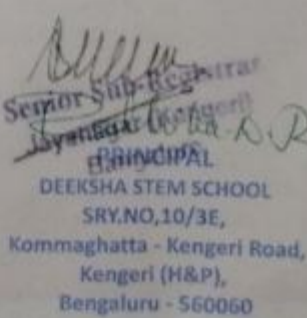 Senior Sub-Registrar
Jayanagar (Kengeri)
PRINCIPAL
DEEKSHA STEM SCHOOL
SRY.NO,10/3E,
Kommaghatta - Kengeri Road,
Kengeri (H&P),
Bengaluru - 560060